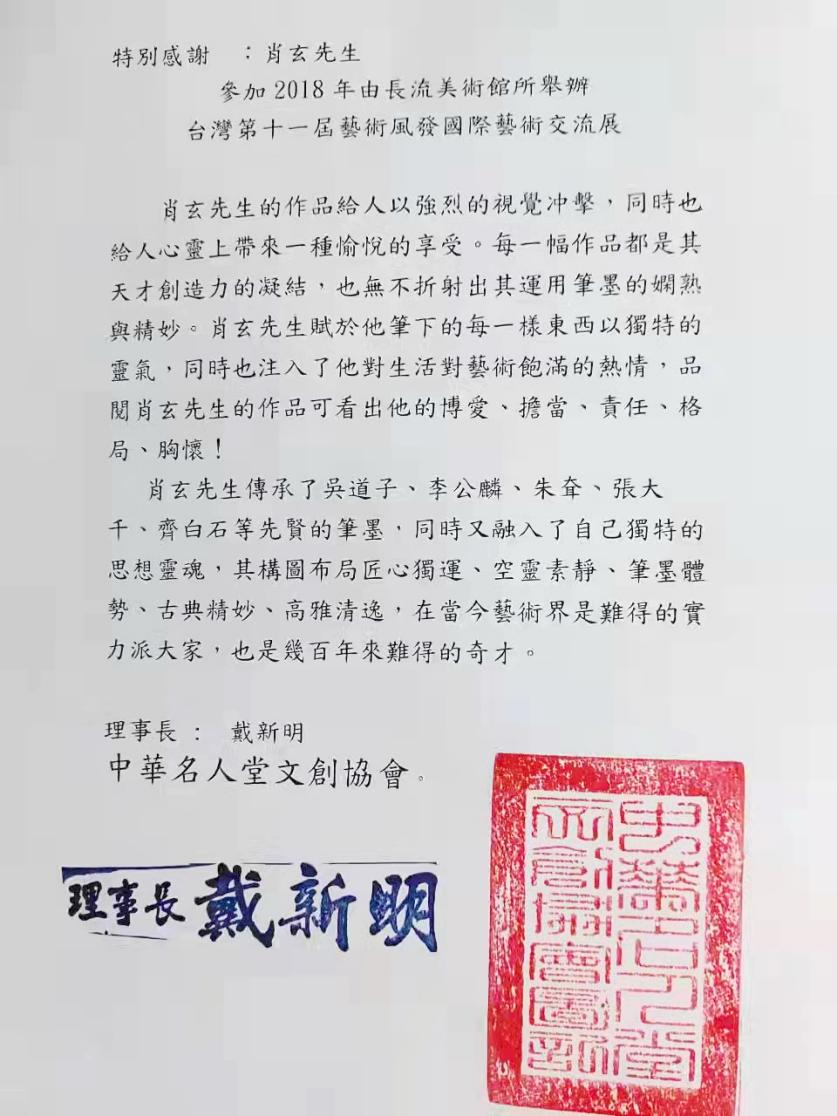 特別感謝　：肖玄先生
參加 2018 年由長流美術館所舉辦
台灣第十一屆藝術風發國際藝術交流展
肖玄先生的作品給人以強烈的視覺冲擊，同時也
給人心靈上帶來一種愉悅的享受。每一幅作品都是其
天才創造力的凝結，也無不折射出其運用筆墨的嫻熟
與精妙。肖玄先生賦於他筆下的每一樣東西以獨特的
靈氣，同時也注入了他對生活對藝術飽滿的熱情，品
閱肖玄先生的作品可看出他的博愛、擔當、責任、格
局、胸懷！
肖玄先生傳承了吳道子、李公麟、朱耷、張大
千、齊白石等先賢的筆墨，同時又融入了自己獨特的
思想靈魂，其構圖布局匠心獨運、空靈素靜、筆墨體
勢、古典精妙、高雅清逸，在當今藝術界是難得的實
力派大家，也是幾百年來難得的奇才。
理事長：　戴新明
中華名人堂文創協會。
理事長 戴新明
中華名人堂
文創協會圖記